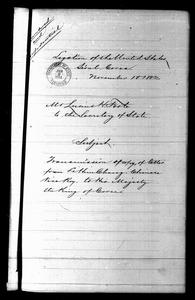 Legation of the United States
Seoul Corea
November 15 188
Mr Lucius H Foote
to the Secretary of State
Subject
Transmission of copy of letter
from Li Hung Chang Chinese
Viceroy to His Majesty
the King of Corea